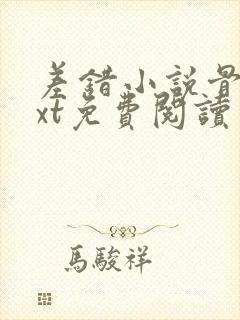 差錯小説骨
xt免費閱讀
馬駿祥